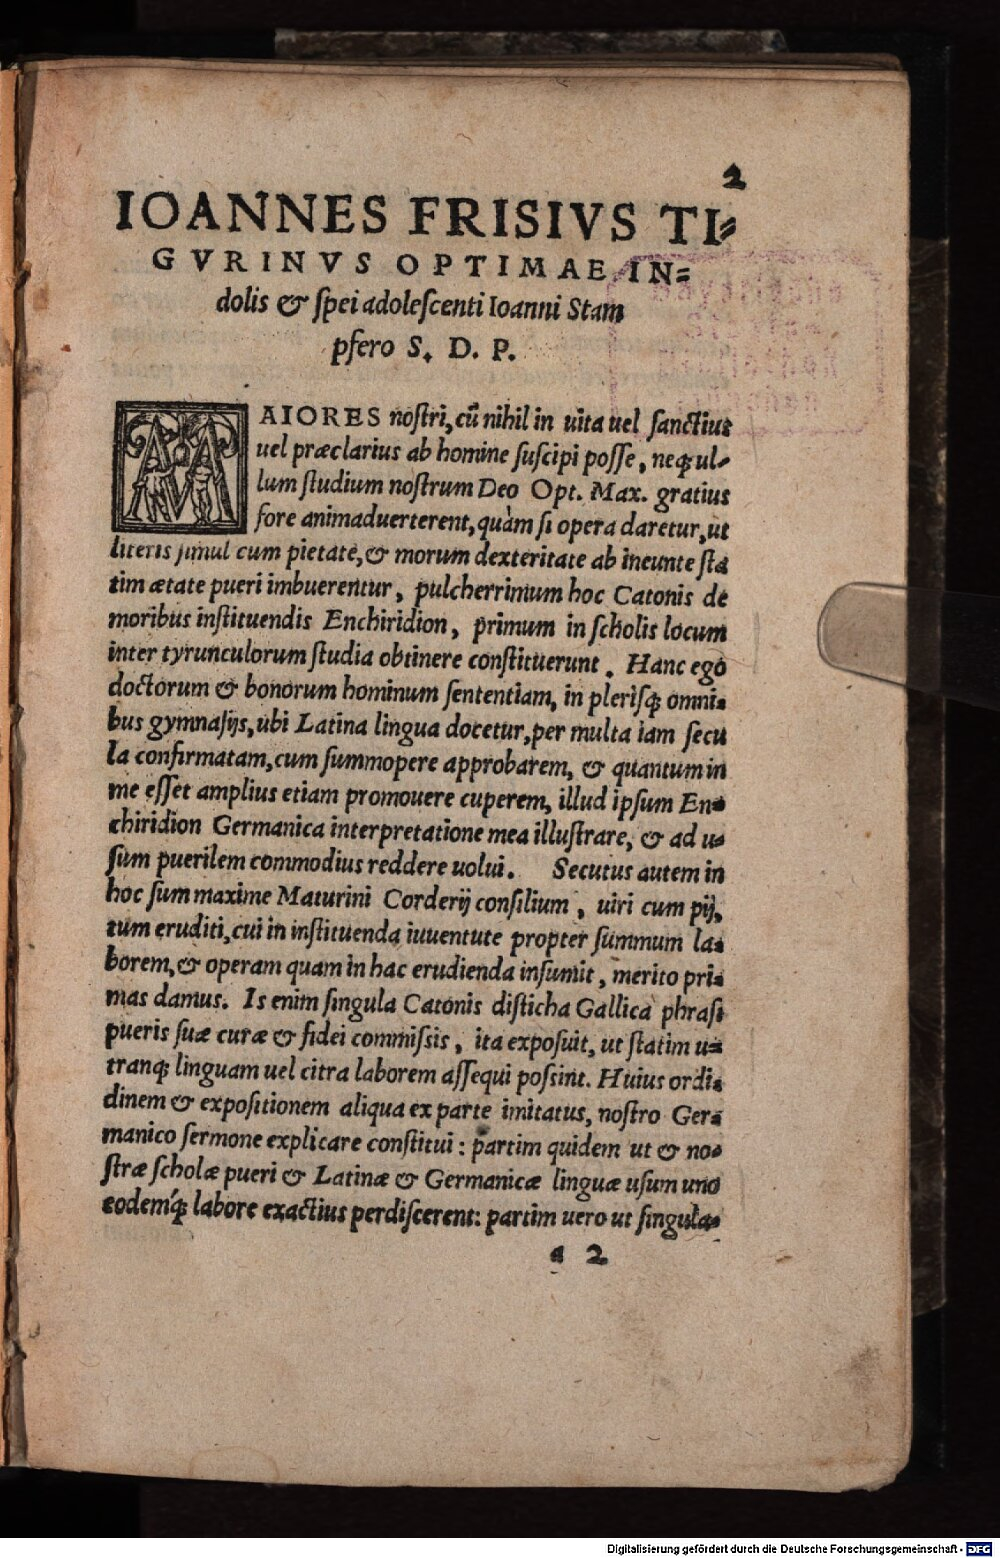 2
IOANNES FRISIVS TI⸗
GVRINVS OPTIMAE IN⸗
dolis & ſpei adoleſcenti Ioanni Stam
pfero S. D. P.
MAIORES noſtri, cũ nihil in uita uel ſanctius
uel præclarius ab homine ſuſcipi poſſe, neqꝫ ul⸗
lum ſtudium noſtrum Deo Opt. Max. gratius
fore animaduerterent, quàm ſi opera daretur, ut
literis ſimul cum pietate, & morum dexteritate ab ineunte ſta
tim ætate pueri imbuerentur, pulcherrimum hoc Catonis de
moribus inſtituendis Enchiridion, primum in ſcholis locum
inter tyrunculorum ſtudia obtinere conſtituerunt. Hanc ego
doctorum & bonorum hominum ſententiam, in pleriſqꝫ omni⸗
bus gymnaſijs, ubi Latina lingua docetur, per multa iam ſecu
la confirmatam, cum ſummopere approbarem, & quantum in
me eſſet amplius etiam promouere cuperem, illud ipſum En⸗
chiridion Germanica interpretatione mea illuſtrare, & ad u⸗
ſum puerilem commodius reddere uolui. Secutus autem in
hoc ſum maxime Maturini Corderij conſilium, uiri cum pij,
tum eruditi, cui in inſtituenda iuuentute propter ſummum la⸗
borem, & operam quam in hac erudienda inſumit, merito pri⸗
mas damus. Is enim ſingula Catonis diſticha Gallica phraſi
pueris ſuæ curæ & fidei commiſsis, ita expoſuit, ut ſtatim u⸗
tranqꝫ linguam uel citra laborem aſſequi poſsint. Huius ordi⸗
dinem & expoſitionem aliqua ex parte imitatus, noſtro Ger⸗
manico ſermone explicare conſtitui: partim quidem ut & no⸗
ſtræ ſcholæ pueri & Latinæ & Germanicæ linguæ uſum uno
eodemq́ꝫ labore exactius perdiſcerent: partim uero ut ſingula⸗
a 2
Digitalisierung gefördert durch die Deutsche Forschungsgemeinschaft - DFG